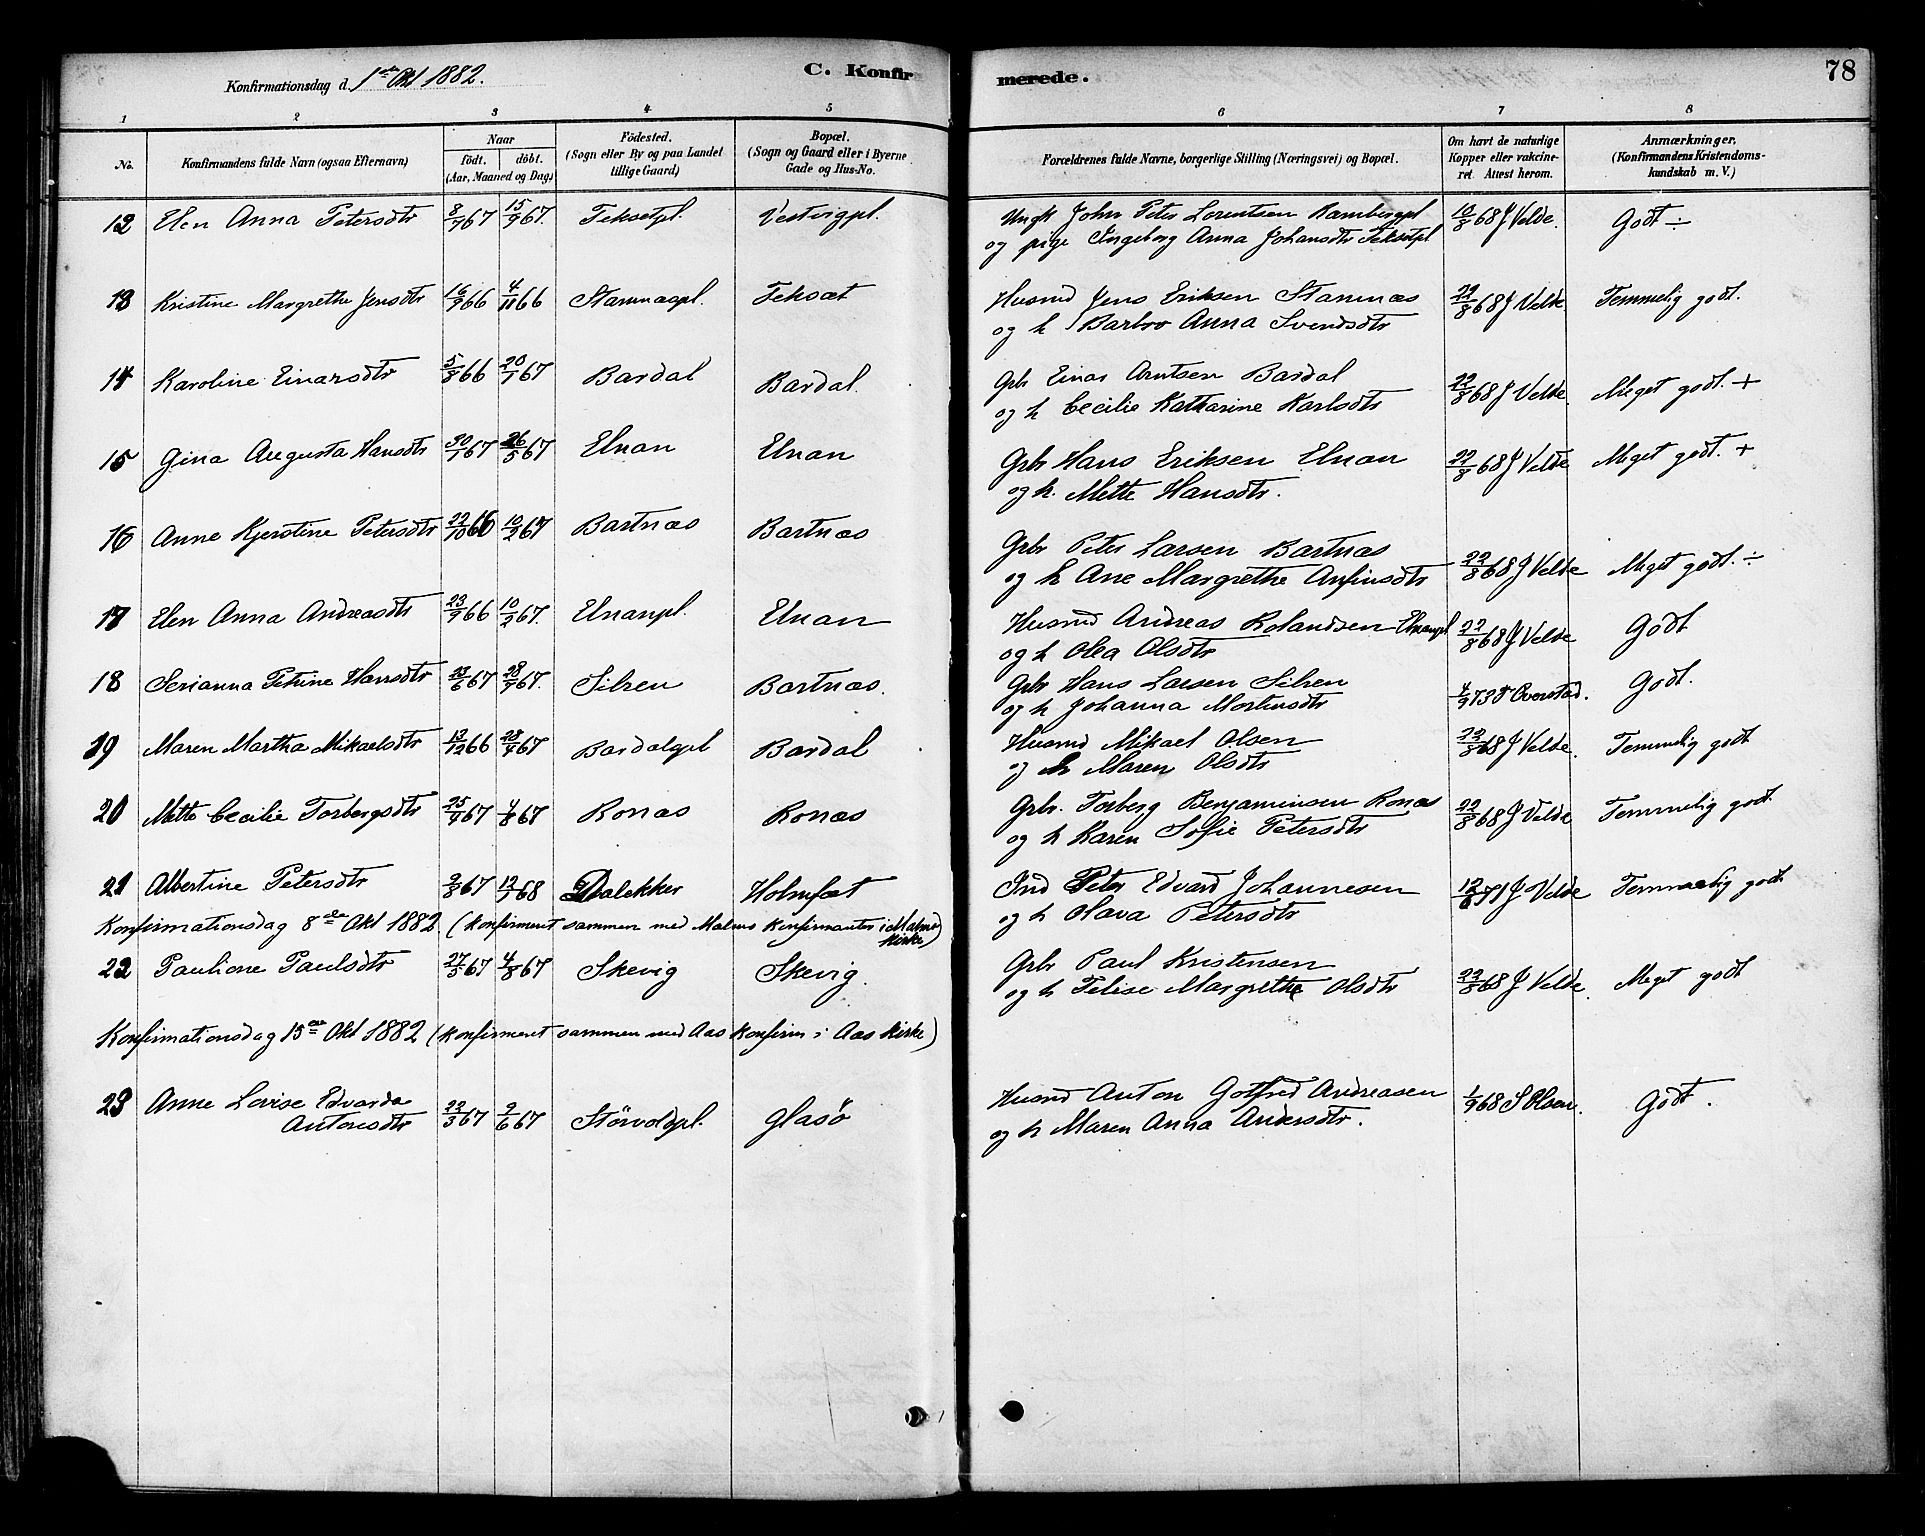 Konfirmationsdag d. 1ste Okt 1882.
C. Konfirmerede.
78
1 2 3 4 5 6 7 8
No.
Konfirmandens fulde Navn (ogsaa Efternavn)
Naar
födt. döbt.
(Aar, Maaned og Dag)
Födested.
(Sogn eller By og paa Landet
tillige Gaard)
Bopæl.
(Sogn og Gaard eller i Byerne
Gade og Hus-No.
Forældrenes fulde Navne, borgerlige Stilling (Næringsvei) og Bopæl.
Om havt de naturlige
Kopper eller vakcine-
ret. Attest herom.
Anmærkninger,
(Konfirmandens Kristendoms-
kundskab m. V.)
12 Elen Anna Petersdtr 8/7 67 15/9 67. Teksetpl. Vestvigpl. Ungk John Peter Lorentsen Rambergpl 10/8 68 J Velde. Godt ÷
og pige Ingeborg Anna Johansdtr Teksetpl
13 Kristine Margrethe Jensdtr 16/9 66 4/11 66 Stamnæspl. Teksæt Husmd Jens Eriksen Stamnæs 22/8 68 J Velde Temmelig godt.
og h Barbro Anna Svendsdtr
14 Karoline Einarsdtr 5/8 66 20/1 67 Bardal Bardal. Gbr Einar Arntsen Bardal 22/8 68 J Velde. Meget godt. +
og h Cecilie Katharine Karlsdtr
15 Gina Augusta Hansdtr 30/1 67 26/5 67 Elnan Elnan Grbr Hans Eriksen Elnan 22/8 68 J Velde Meget godt. +
og h. Mette Hansdtr.
16 Anne Kjerstine Petersdtr 22/10 66 10/2 67 Bartnæs Bartnæs Grbr Peter Larsen Bartnæs
og h Ane Margrethe Anfinsdtr 22/8 68 J Velde Meget godt. ÷
17 Elen Anna Andreasdtr 23/9 66 10/2 67. Elnanpl. Elnan Husmd Andreas Rolandsen Elnanpl 22/8 68 J Velde Godt
og h Olea Olsdtr
18 Serianna Petrine Hansdtr 23/6 67 28/7 67. Silren Bartnæs. Grbr Hans Larsen Silren 4/9 73 Overstad. Godt.
og h Johanna Mortensdtr
19 Maren Martha Mikaelsdtr 13/12 66 28/4 67 Bardalspl Bardal Husmd Mikael Olsen 22/8 68 J Velde. Temmelig godt
og h Maren Olsdtr
20 Mette Cecilie Torbergsdtr 25/4 67 4/8 67 Ronæs Ronæs Grbr. Torberg Benjaminsen Ronæs 22/8 68 J Velde Temmelig godt.
og h Karen Sofie Petersdtr
21 Albertine Petersdtr 2/8 67 12/1 68 Dalekker Holmset Ind Peter Edvard Johannesen 12/8 71 J Velde Temmelig godt
og h Olava Petersdtr
Konfirmationsdag 8de Okt 1882. (konfirmeret sammen med Malmo konfirmanter i Malmo
kirke)
22 Pauliane Paulsdtr 27/5 67 4/8 67 Skevig Skevig. Grbr Paul Kristensen
og h Felise Margrethe Olsdtr 22/8 68 J Velde. Meget godt
Konfirmationsdag 15de Okt 1882 (konfirmeret sammen med Aas konfirm i Aas kirke)
23 Anne Lovise Edvarda
Antonsdtr 22/3 67 2/6 67 Störvoldpl. Glasö Husmd Anton Gotfred Andreasen 1/9 68 S Olsen. Godt.
og h Maren Anna Andersdtr.